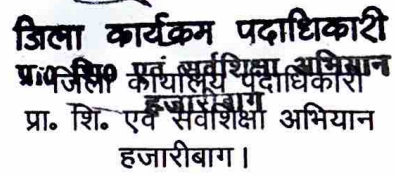 जिला कार्यक्रम पदाधिकारी
प्रा० शि० एवं सर्वशिक्षा अभियान
जिला कार्यालय पदाधिकारी
हजारीबाग
प्रा. शि. एवं सर्वशिक्षा अभियान
हजारीबाग।